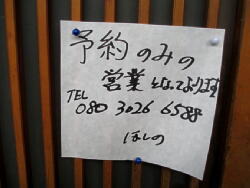 予約のみの
営業となっております
TEL
080 3026 6588
ほしの